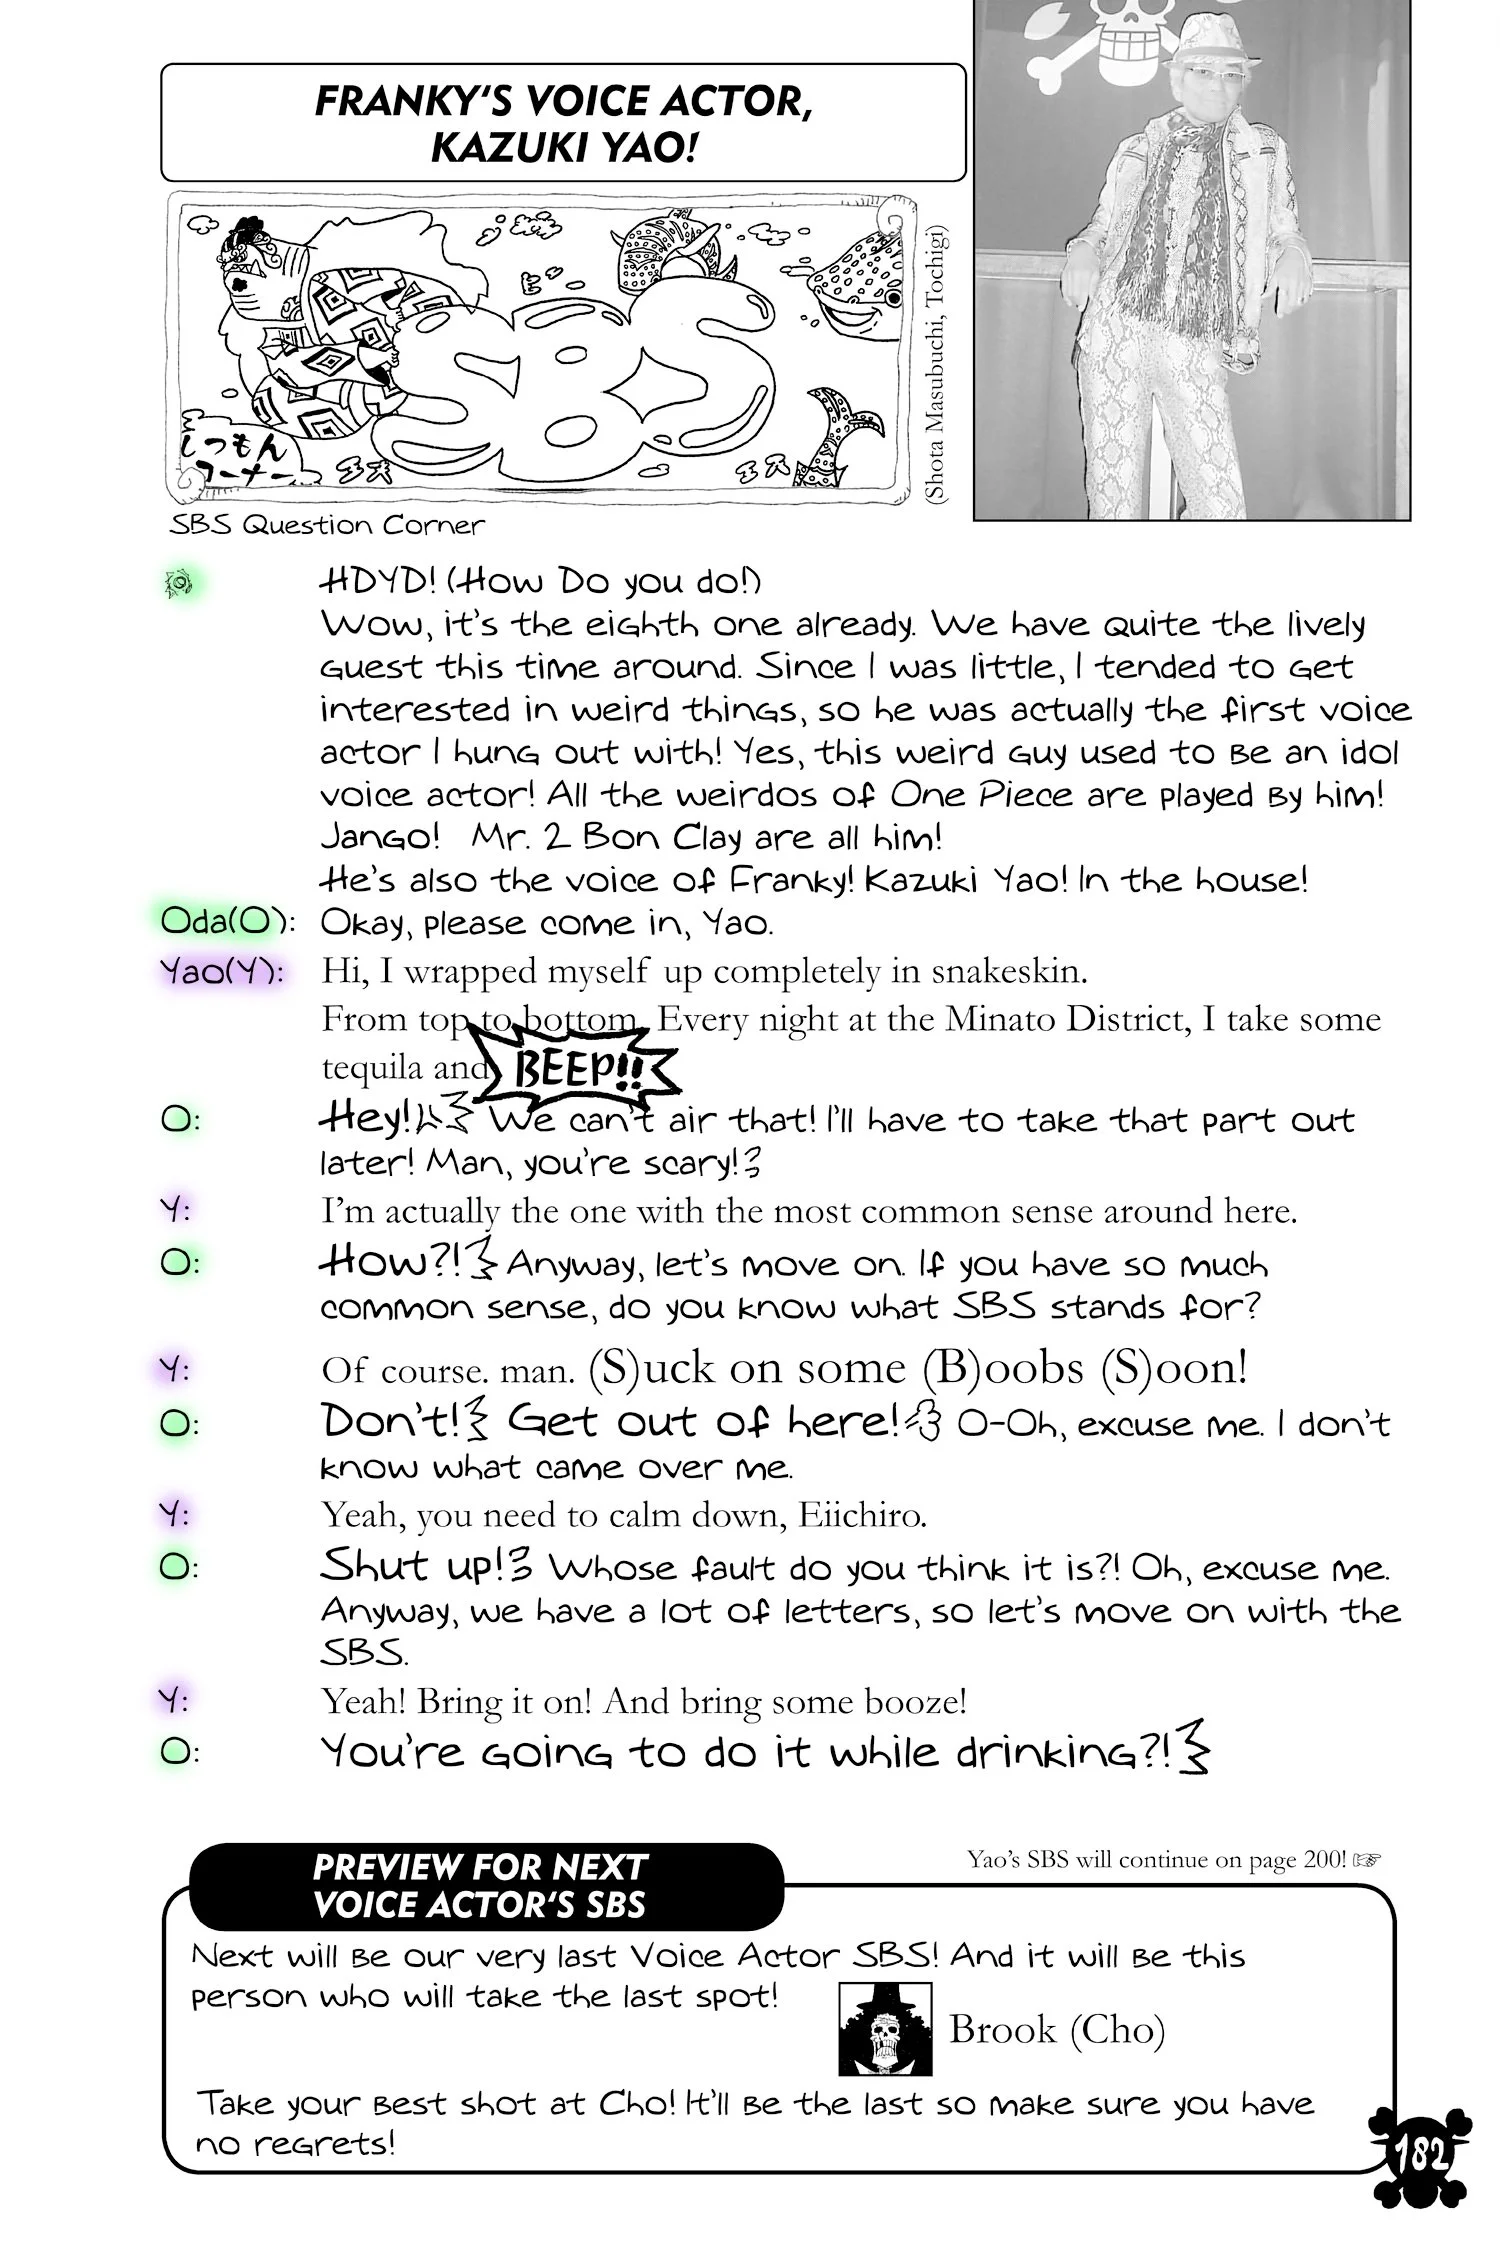 FRANKY'S VOICE ACTOR,
KAZUKI YAO!
SBS
しつもん
コーナー
(Shota Masubuchi, Tochigi)
SBS Question Corner
HDYD! (How Do you do!)
Wow, it's the eighth one already. We have quite the lively
guest this time around. Since I was little, I tended to get
interested in weird things, so he was actually the first voice
actor I hung out with! Yes, this weird guy used to be an idol
voice actor! All the weirdos of One Piece are played by him!
Jango! Mr. 2 Bon Clay are all him!
He's also the voice of Franky! Kazuki Yao! In the house!
Oda(O): Okay, please come in, Yao.
Yao(Y): Hi, I wrapped myself up completely in snakeskin.
From top to bottom. Every night at the Minato District, I take some
tequila and BEEP!!
O: Hey! We can't air that! I'll have to take that part out
later! Man, you're scary!
Y: I'm actually the one with the most common sense around here.
O: How?! Anyway, let's move on. If you have so much
common sense, do you know what SBS stands for?
Y: Of course. man. (S)uck on some (B)oobs (S)oon!
O: Don't! Get out of here! O-Oh, excuse me. I don't
know what came over me.
Y: Yeah, you need to calm down, Eiichiro.
O: Shut up! Whose fault do you think it is?! Oh, excuse me.
Anyway, we have a lot of letters, so let's move on with the
SBS.
Y: Yeah! Bring it on! And bring some booze!
O: You're going to do it while drinking?!
Yao's SBS will continue on page 200!
PREVIEW FOR NEXT
VOICE ACTOR'S SBS
Next will be our very last Voice Actor SBS! And it will be this
person who will take the last spot!
Brook (Cho)
Take your best shot at Cho! It'll be the last so make sure you have
no regrets!
182